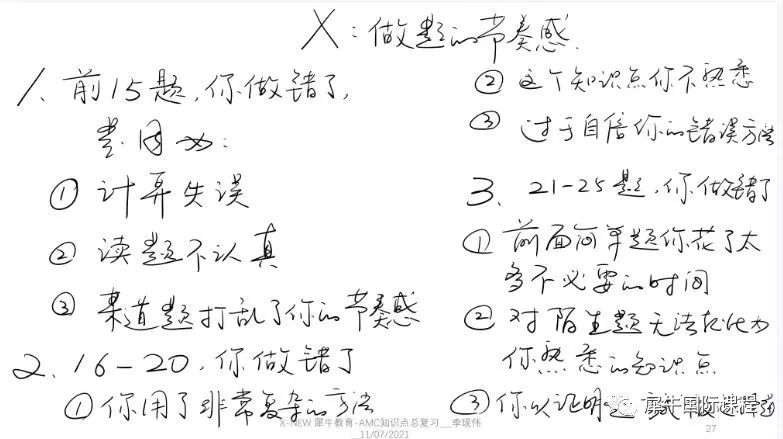 X：做题的节奏感
1、前15题，你做错了，
是因为：
① 计算失误
② 读题不认真
③ 某道题打乱了你的节奏感
2、16-20，你做错了
① 你用了非常复杂的方法
② 这个知识点你不熟悉
③ 过于自信你的错误方法
3、21-25题，你做错了
① 前面简单题你花了太
多不必要的时间
② 对陌生题无法转化为
你熟悉的知识点
③ 你以证明题
犀牛国际课程
X-NEW 犀牛教育-AMC知识点总复习__李现伟
__11/07/2021
27